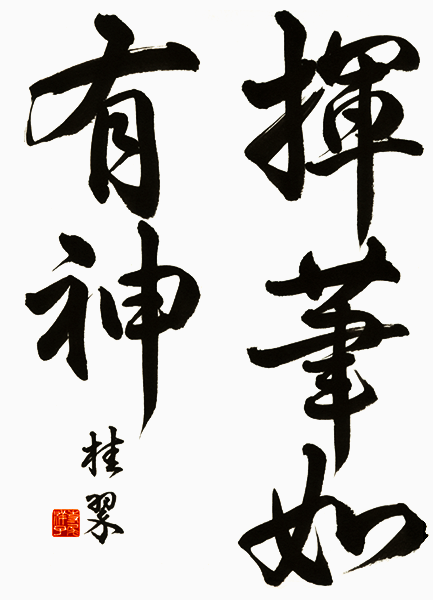 揮筆如
有神
桂翠